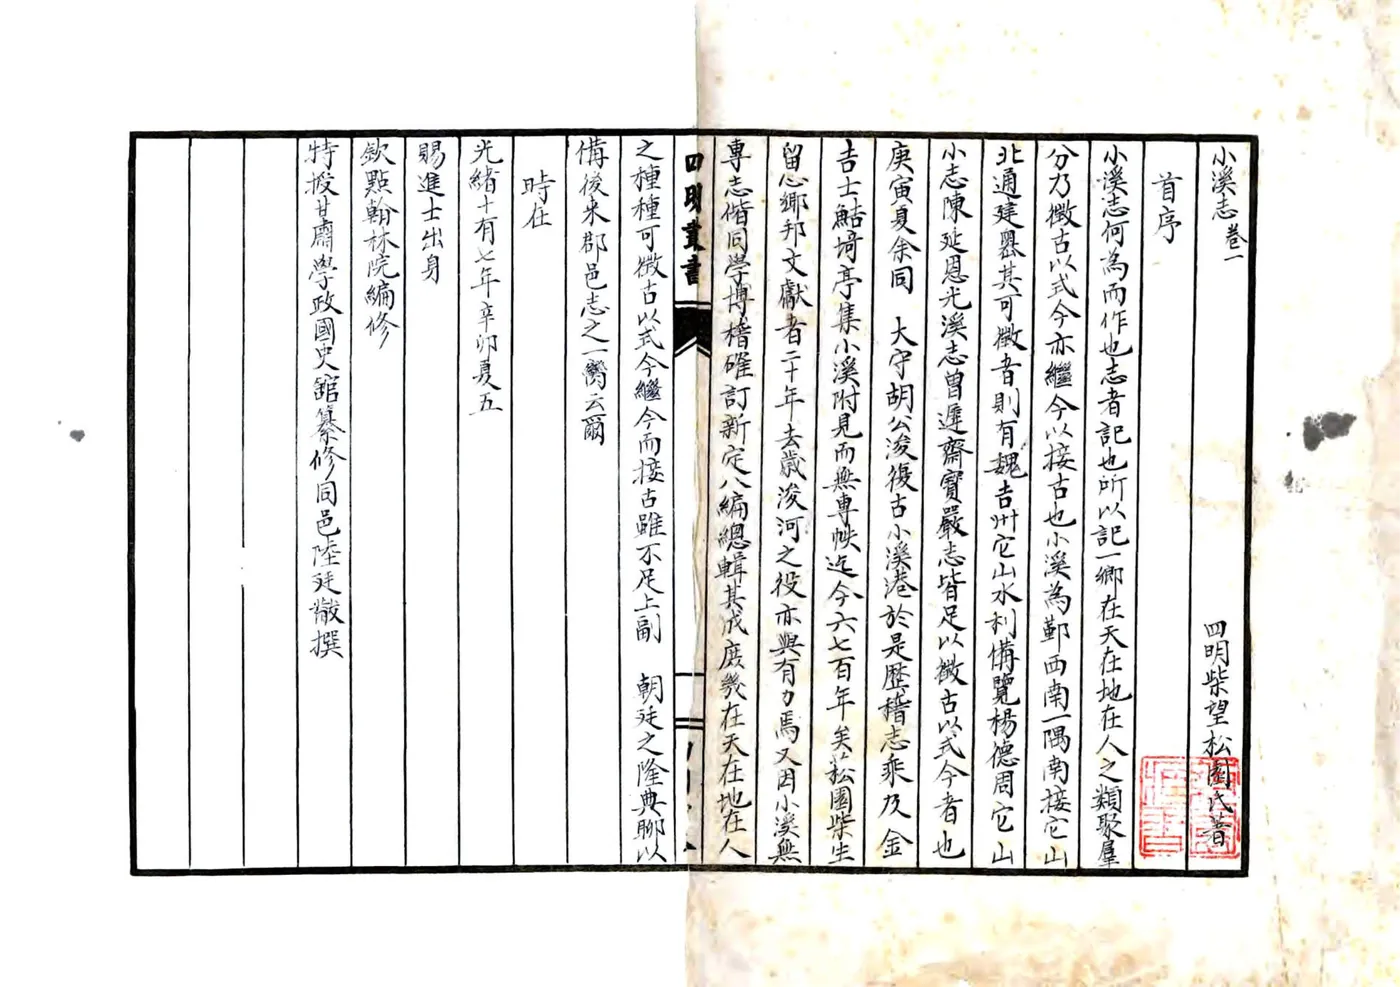 小溪志卷一
四明柴望松園氏著
首序
小溪志何為而作也志者記也所以記一鄉在天在地在人之類聚羣
分乃徵古以式今亦繼今以接古也小溪為鄞西南一隅南接它山
北通建嶴其可徵者則有魏吉州它山水利備覽楊德周它山
小志陳延恩光溪志曾遲齋寶嚴志皆足以徵古以式今者也
庚寅夏余同 大守胡公浚復古小溪港於是歷稽志乘及金
吉士鮚埼亭集小溪附見而無專帙迄今六七百年矣菘園柴生
留心鄉邦文獻者二十年去歲浚河之役亦與有力焉又因小溪無
專志偕同學博稽確訂新定八編總輯其成庶幾在天在地在人
四明叢書
之種種可徵古以式今繼今而接古雖不足上副 朝廷之隆典聊以
備後來郡邑志之一臠云爾
時在
光緒十有七年辛卯夏五
賜進士出身
欽點翰林院編修
特授甘肅學政國史館纂修同邑陸廷黻撰